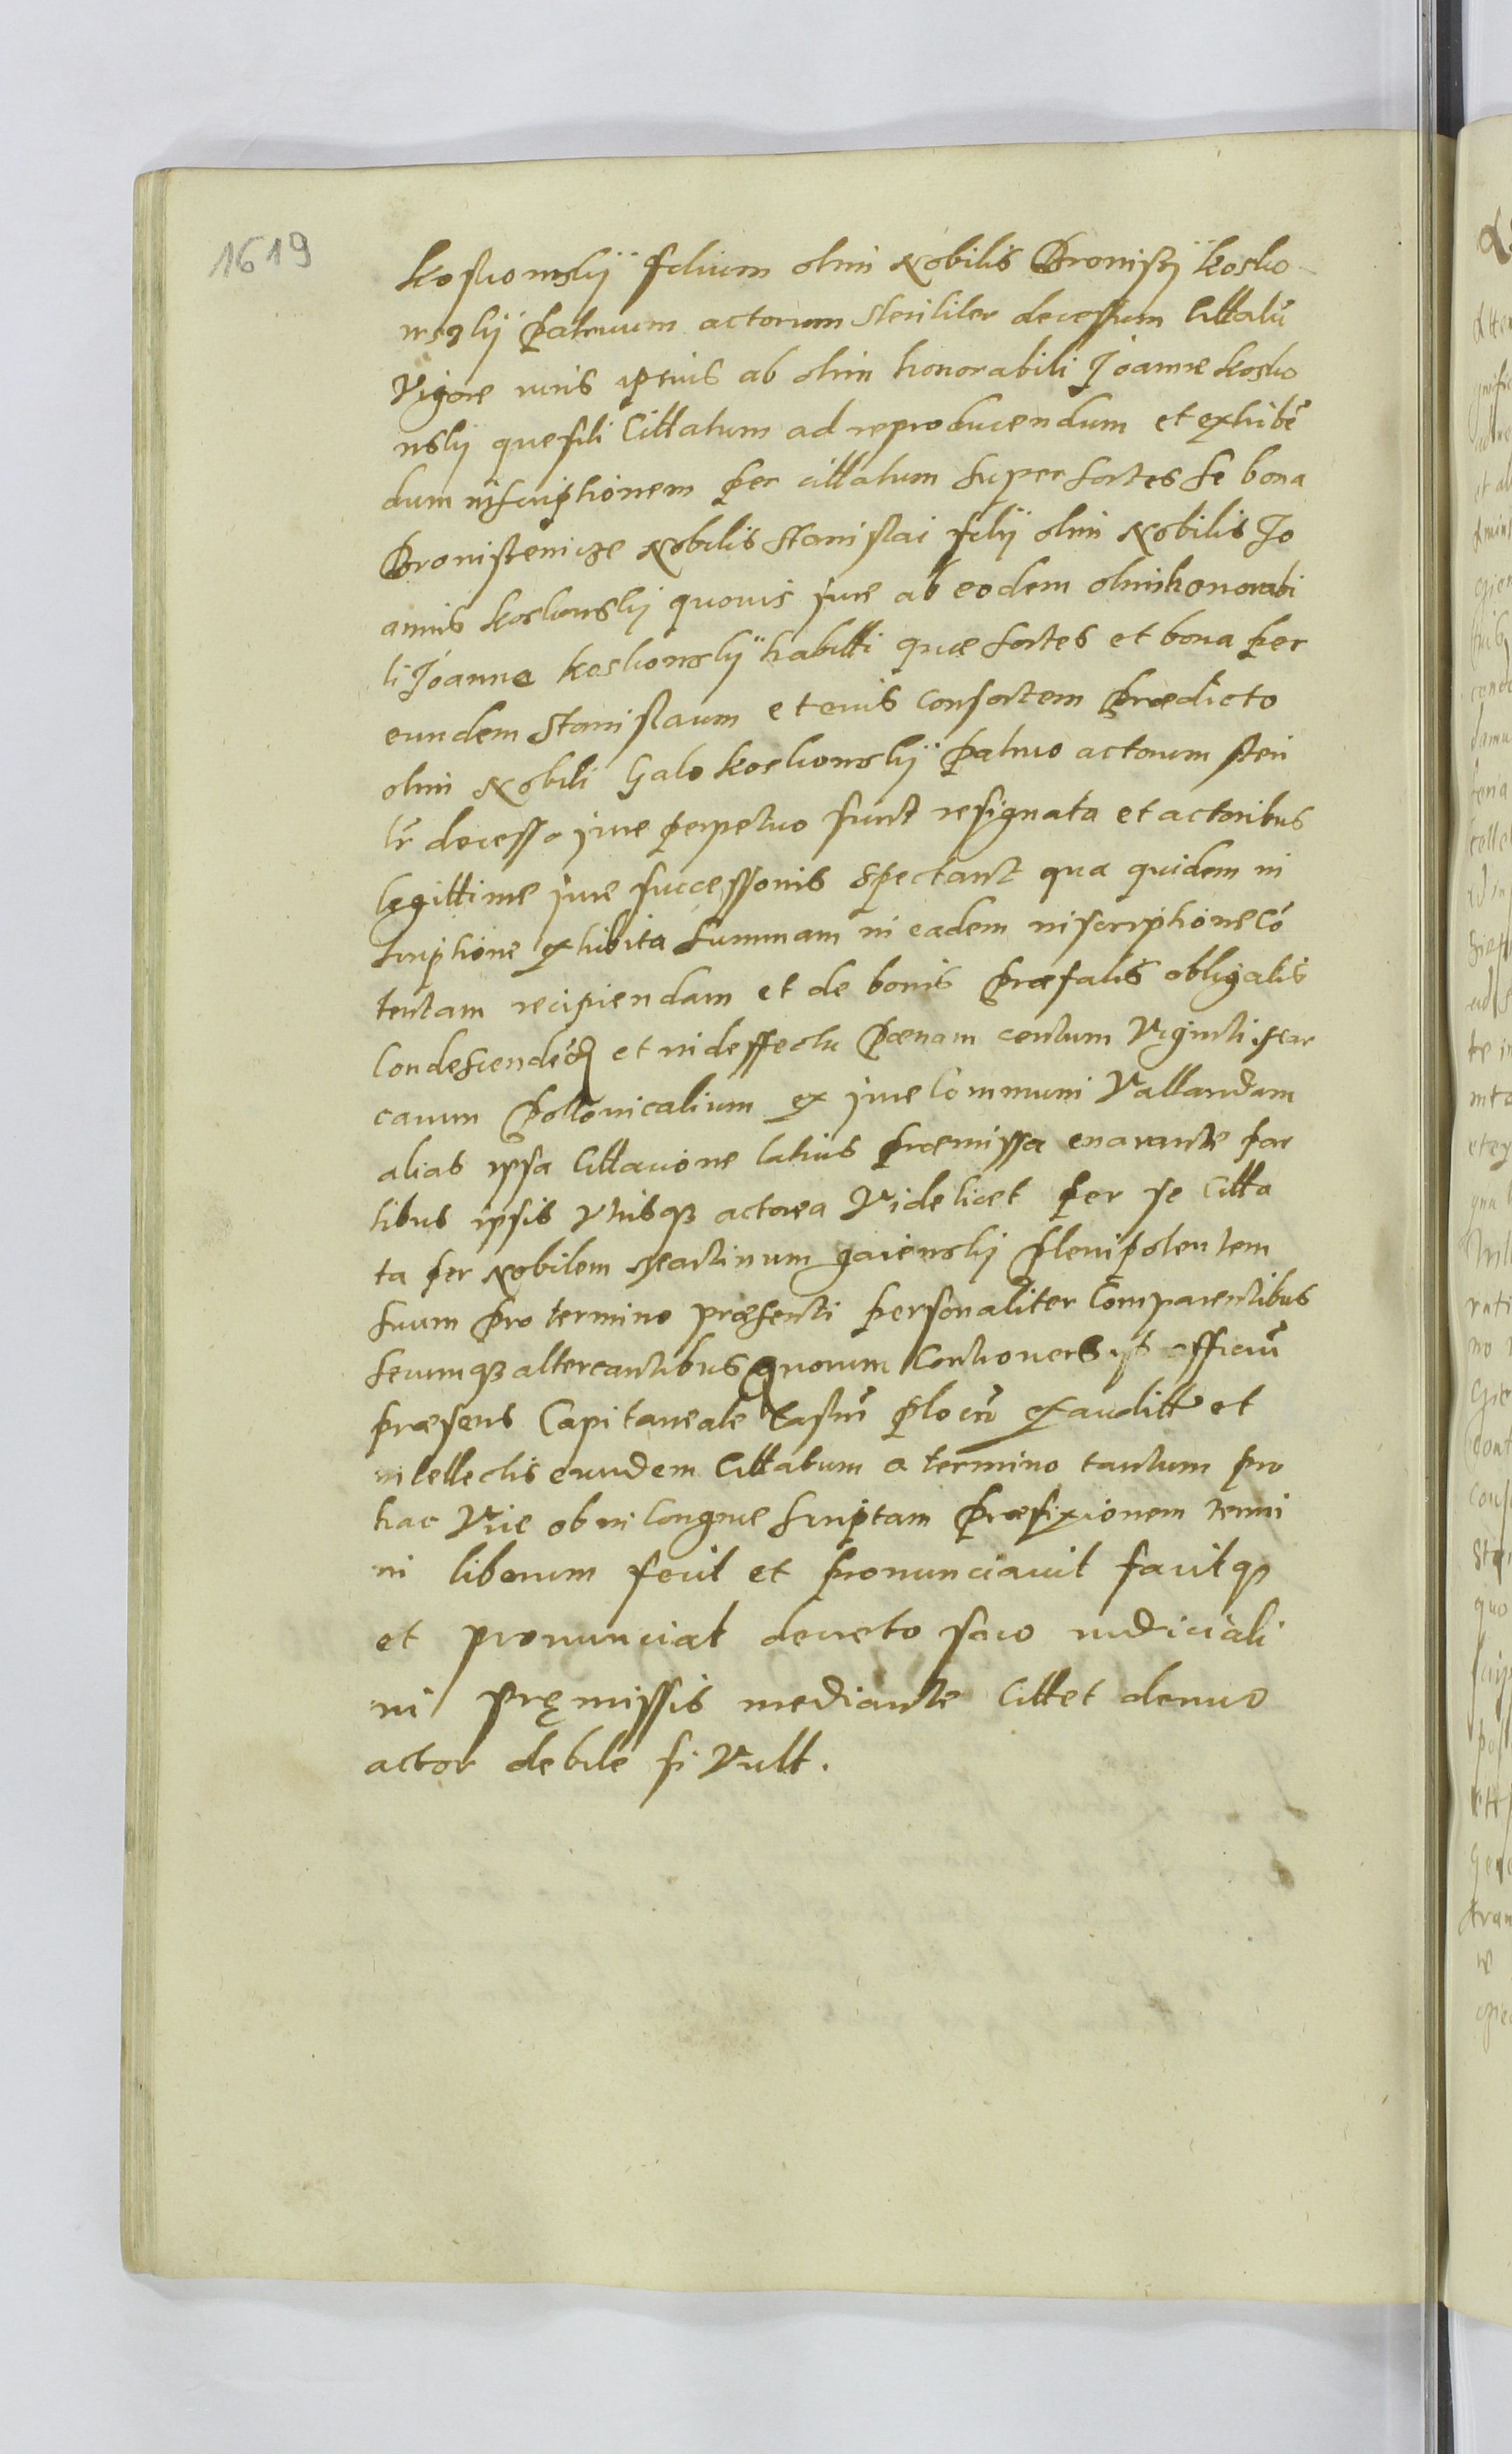 1619
Koskowskÿ filium olim Nobilis Broniszÿ Kosko
wskÿ Patruum actorum steriliter decessum Cittatũ
Vigore iuris ipsius ab olim honorabili Joanne Kosko
wskÿ quesiti Cittatum ad reproducendum et exhibẽ
dum inscriptionem per cittatum super sortes se bona
Broniszewicze Nobilis Stanislai filÿ olim Nobilis Jo
annis Koskowskÿ quovis jure ab eodem olim honorabi
li Joanne Koskowskÿ habitti quae sortes et bona per
eundem Stanislaum et eius consortem Praedicto
olim Nobili Galo Koskowskÿ Patruo actorum steri
lr decesso jure perpetuo sunt resignata et actoribus
legittime jure successionis spectant qua quidem in
scriptione exhibita summam in eadem inscriptione cõ
tentam recipiendam et de bonis Praefatis obligatis
Condescendẽd et in deffectu Paenam centum Viginti mar
carum Pollonicalium ex jure Communi Vallandam
alias ipsa Cittacione latius praemissa enarrante par
tibus ipsis Vtrisqz actorea Videlicet per se Citta
ta per Nobilem Martinum gaienskÿ Plenipotentem
suum Pro termino praesenti personaliter Comparentibus
seseumqz altercantibus Quorum Controversÿs officiũ
praesens Capitaneale Castrẽ Plocẽ exauditt et
intellectis eundem Cittatum a termino tantum pro
hac Vice ob in congrue scriptam Praefixionem termi
ni liberum fecit et pronunciavit facitqz
et pronunciat decreto suo iudiciali
in pręmissis mediante Cittet denuo
actor debite si Vult.